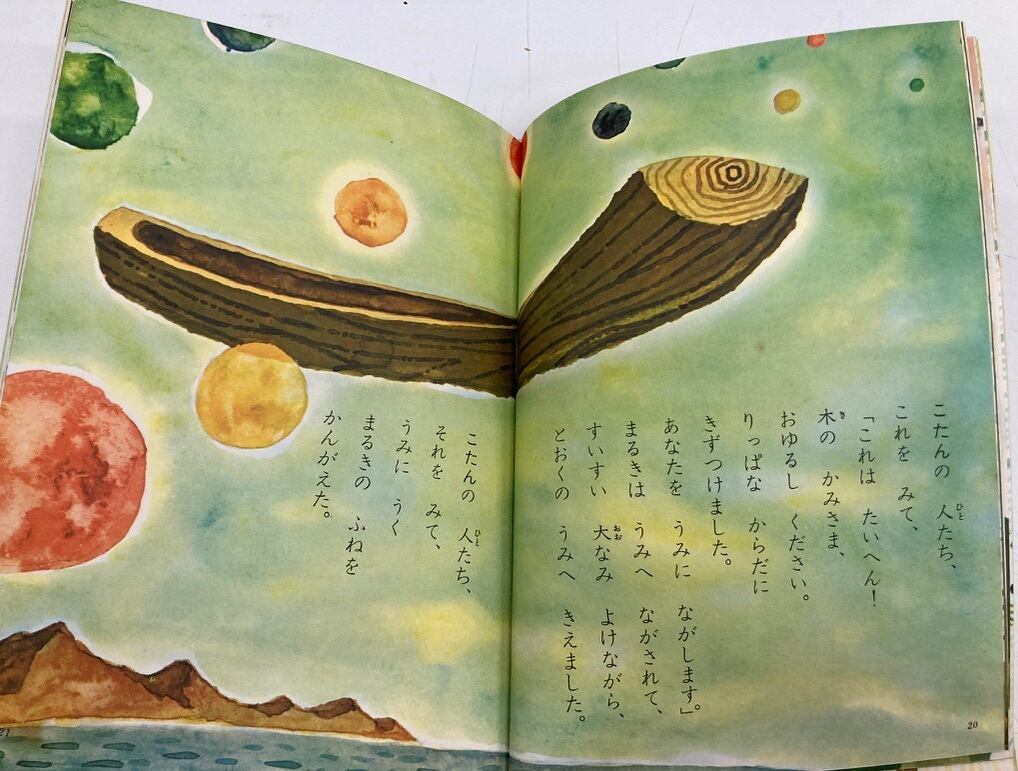 こたんの 人たち、
これを みて、
「これは たいへん!
木の かみさま、
おゆるし ください。
りっぱな からだに
きずつけました。
あなたを うみに ながします」
まるきは うみへ ながされて、
すいすい 大なみ よけながら、
とおくの うみへ きえました。
20
こたんの 人たち、
それを みて、
うみに うく
まるきの ふねを
かんがえた。
21